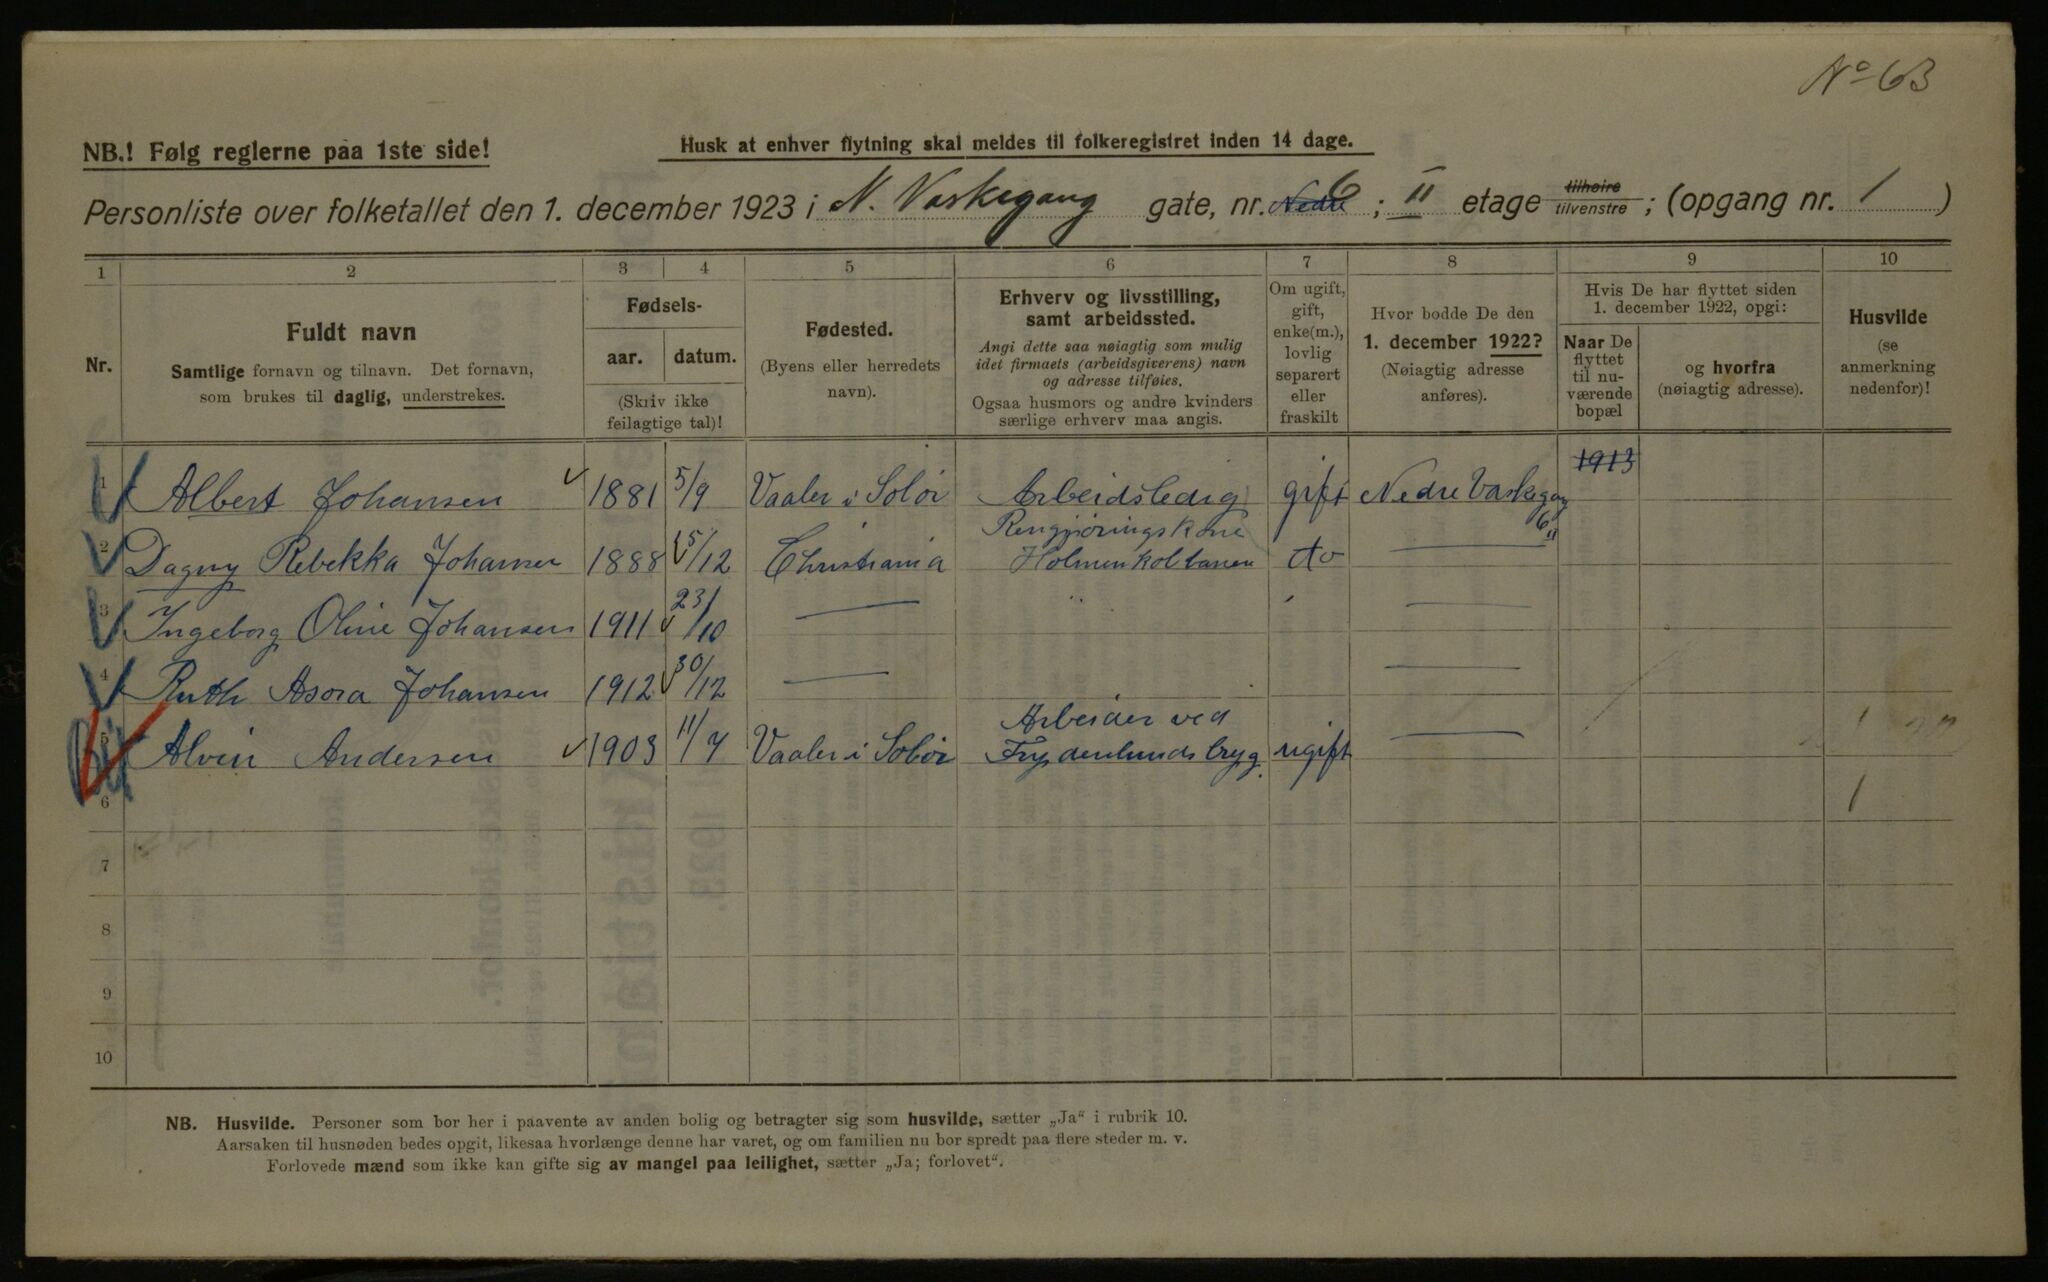 No 63
NB.! Følg reglerne paa 1ste side!
Husk at enhver flytning skal meldes til folkeregistret inden 14 dage.
Personliste over folketallet den 1. december 1923 i N. Vaskegang gate, nr. Nedre 6 ; II etage tilhøire tilvenstre ; (opgang nr. 1 )
1 2 3 4 5 6 7 8 9 10
Nr.
Fuldt navn
Samtlige fornavn og tilnavn. Det fornavn,
som brukes til daglig, understrekes.
Fødsels-
aar. datum.
(Skriv ikke
feilagtige tal)!
Fødested.
(Byens eller herredets
navn).
Erhverv og livsstilling,
samt arbeidssted.
Angi dette saa nøiagtig som mulig
idet firmaets (arbeidsgiverens) navn
og adresse tilføies.
Ogsaa husmors og andre kvinders
særlige erhverv maa angis.
Om ugift,
gift,
enke(m.),
lovlig
separert
eller
fraskilt
Hvor bodde De den
1. december 1922?
(Nøiagtig adresse
anføres).
Hvis De har flyttet siden
1. december 1922, opgi:
Naar De
flyttet
til nu-
værende
bopæl
og hvorfra
(nøiagtig adresse).
Husvilde
(se
anmerkning
nedenfor)!
1913
1 Albert Johansen 1881 5/9 Vaaler i Solør Arbeidsledig gift Nedre Vaskegang
6 II
Rengjøringskone
2 Dagny Rebekka Johansen 1888 15/12 Christiania Holmenkolbanen do —
3 Ingeborg Oline Johansen 1911 23/10 — " " —
4 Ruth Asora Johansen 1912 30/12 — —
Arbeider ved
5 Alvin Andersen 1903 11/7 Vaaler i Solør Frydenlunds bryg. ugift — 1
6 1
7
8
9
10
NB. Husvilde. Personer som bor her i paavente av anden bolig og betragter sig som husvilde, sætter „Ja“ i rubrik 10.
Aarsaken til husnøden bedes opgit, likesaa hvorlænge denne har varet, og om familien nu bor spredt paa flere steder m. v.
Forlovede mænd som ikke kan gifte sig av mangel paa leilighet, sætter „Ja; forlovet“.